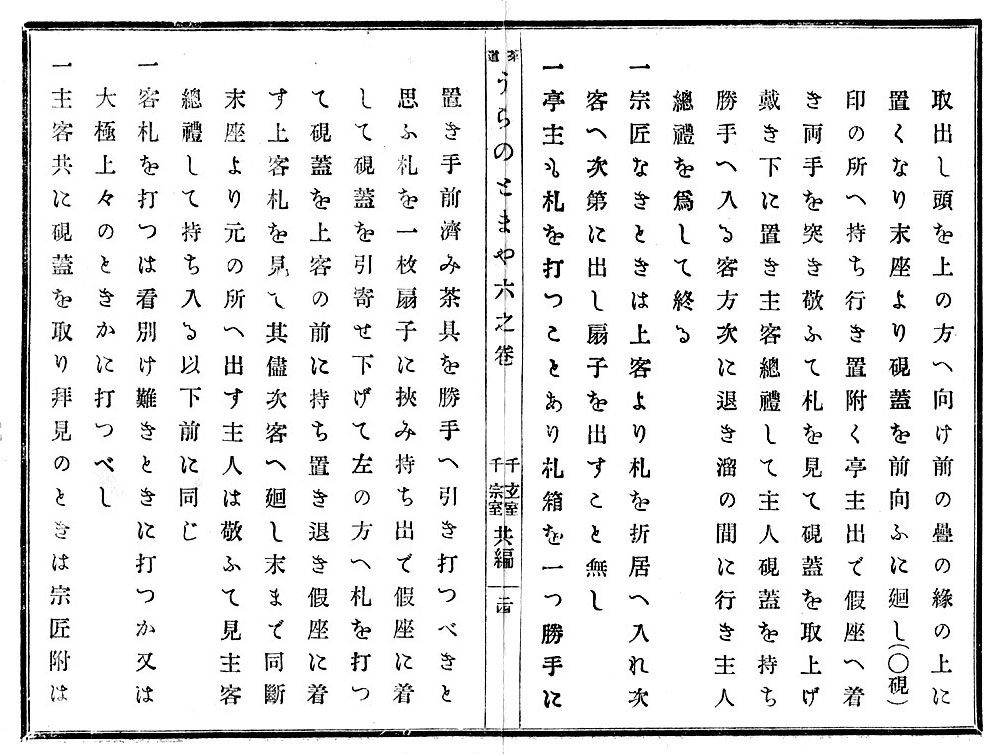 取出し頭を上の方へ向け前の疊の縁の上に
置くなり末座より硯蓋を前向ふに廻し(〇硯)
印の所へ持ち行き置附く亭主出で假座へ着
き両手を突き敬ふて札を見て硯蓋を取上げ
戴き下に置き主客總禮して主人硯蓋を持ち
勝手へ入る客方次に退き溜の間に行き主人
總禮を爲して終る
一宗匠なきときは上客より札を折居へ入れ次
客へ次第に出し扇子を出すこと無し
一亭主も札を打つことあり札箱を一つ勝手に
茶道うらのとまや六之卷 千玄室 千宗室 共編 二百
置き手前濟み茶具を勝手へ引き打つべきと
思ふ札を一枚扇子に挾み持ち出で假座に着
して硯蓋を引寄せ下げて左の方へ札を打つ
て硯蓋を上客の前に持ち置き退き假座に着
す上客札を見て其儘次客へ廻し末まで同斷
末座より元の所へ出す主人は敬ふて見主客
總禮して持ち入る以下前に同じ
一客札を打つは看別け難きときに打つか又は
大極上々のときかに打つべし
一主客共に硯蓋を取り拜見のときは宗匠附は